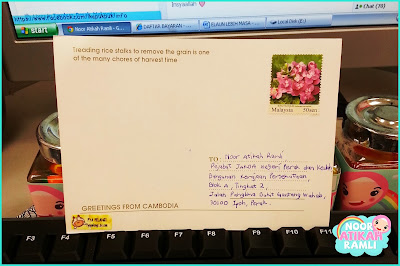 Insyaallah
Chat (70)
start
DAFTAR BAYARAN
ELAUN LEBIH MASA
Local Disk (E:)
Treading rice stalks to remove the grain is one
of the many chores of harvest time
Malaysia 50sen
TO Noor Atikah Ramli
Pejabat JANDA Negeri Perak dan Kedah
Bangunan Kerajaan Persekutuan,
Blok A, Tingkat 2,
Jalan Panglima Bukit Gantang Wahab,
30000 Ipoh, Perak.
GREETINGS FROM CAMBODIA
F3 F4 F5 F6 F7 F8 F9 F10 F11 F12
NOOR
ATIKAH
RAMLI